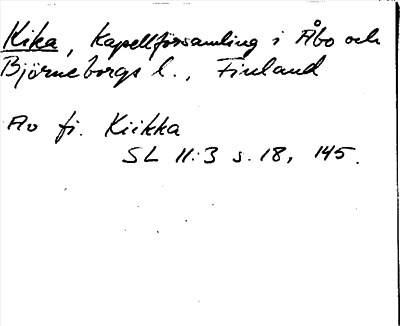 Kika, Kapellförsamling i Åbo och
Björneborgs l., Finland
Av fi. Kiikka
SL 11:3 s. 18, 145.